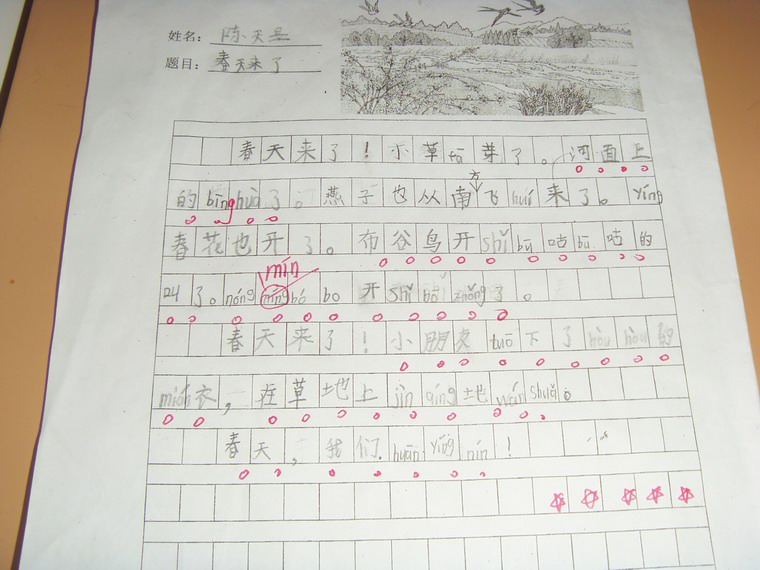 姓名：陈天
题目：春天来了
春天来了！小草fā芽了。河面上
的bīnghuà了。燕子也从南方飞huí来了。yíng
春花也开了。布谷鸟开shǐbù咕bù咕的
叫了。nóngmíng mín bóbo开shǐbō zhǒng了。
春天来了！小朋友tuō下了hòuhòu的
mián衣，在草地上jìnqíng地wánshuǎ。
春天，我们huānyíng nín！